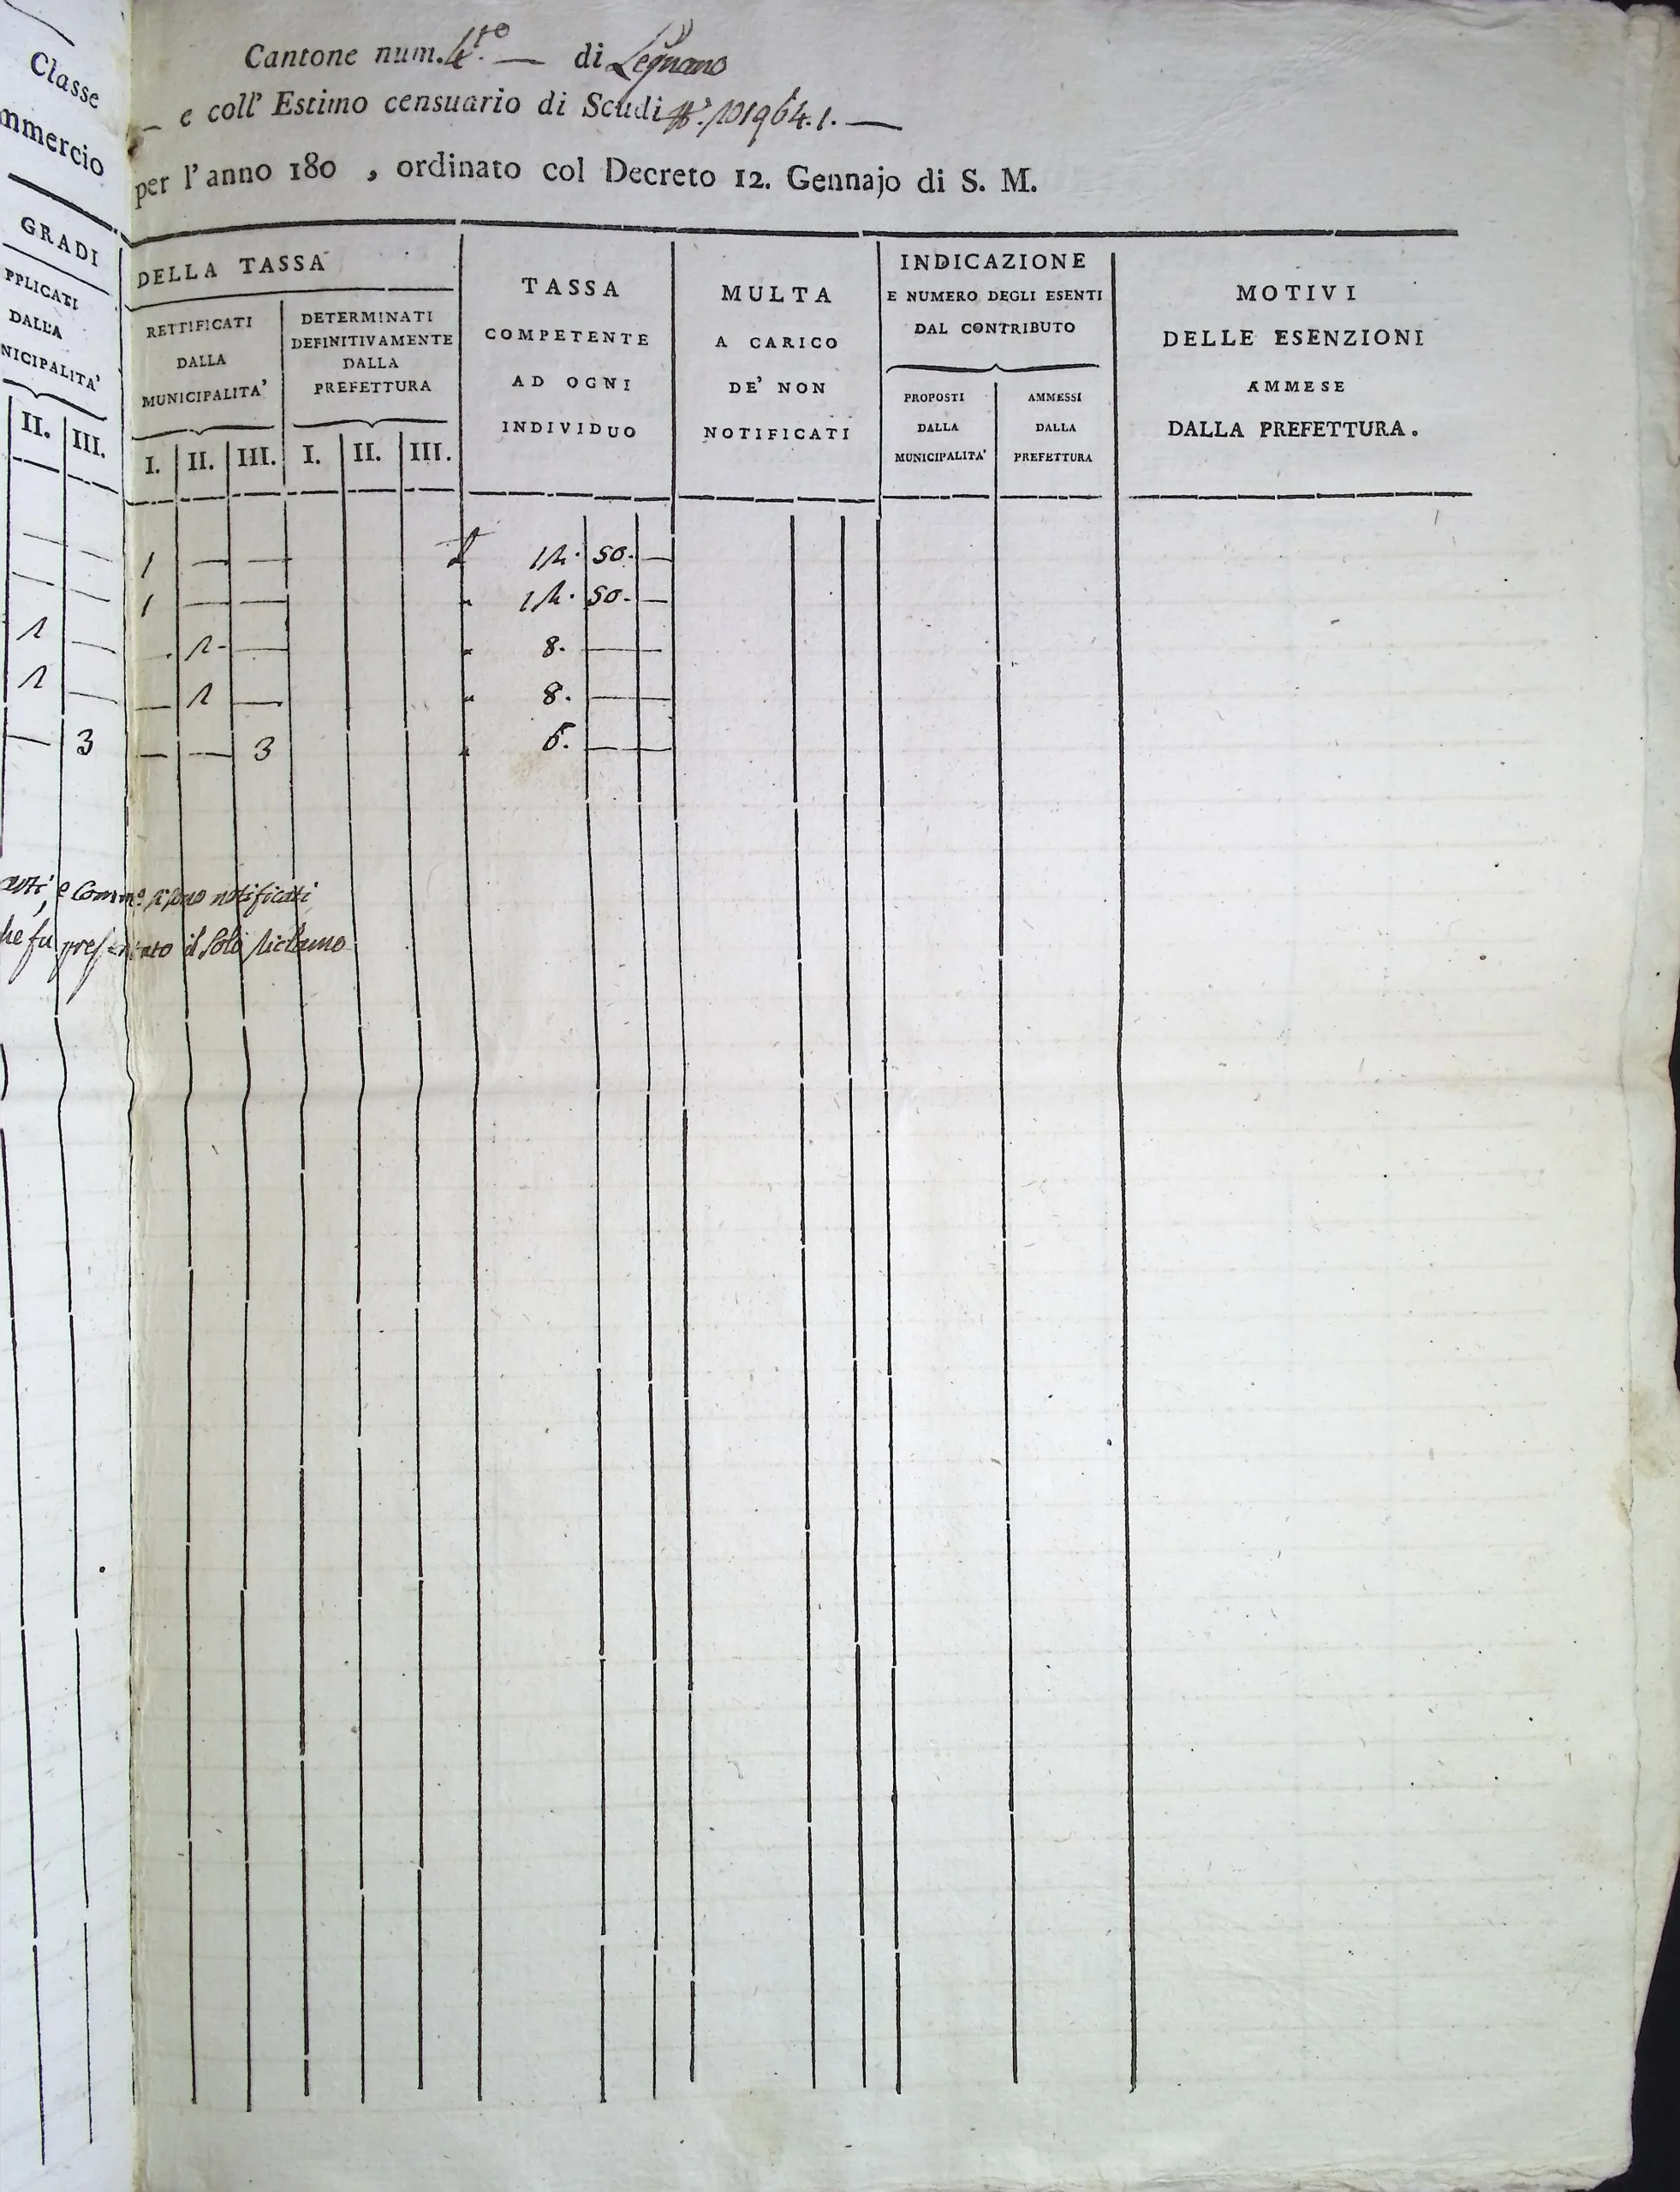 Classe
mmercio
GRADI
PPLICATI
DALLA
NICIPALITA'
II. III.
1
1
— 3
Cantone num. 4.to — di Legnano
— e coll' Estimo censuario di Scudi 101964.1. —
per l'anno 180 , ordinato col Decreto 12. Gennajo di S. M.
DELLA TASSA
RETTIFICATI
DALLA
MUNICIPALITA'
I. II. III.
DETERMINATI
DEFINITIVAMENTE
DALLA
PREFETTURA
I. II. III.
TASSA
COMPETENTE
AD OGNI
INDIVIDUO
MULTA
A CARICO
DE' NON
NOTIFICATI
INDICAZIONE
E NUMERO DEGLI ESENTI
DAL CONTRIBUTO
PROPOSTI
DALLA
MUNICIPALITA'
AMMESSI
DALLA
PREFETTURA
MOTIVI
DELLE ESENZIONI
AMMESE
DALLA PREFETTURA.
1 — — 50. —
1 — — 50. —
1 — 8. — —
— 1 — 8. — —
— — 3 — —
notificati
he fu presentato il solo